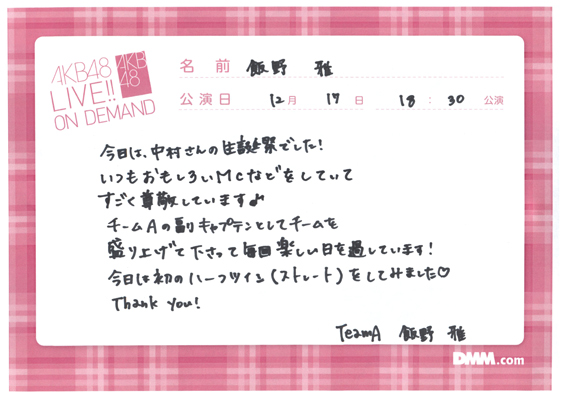 AKB48
LIVE!!
ON DEMAND
AKB
48
名 前 飯野 雅
公演日 12月 17日 18:30 公演
今日は、中村さんの生誕祭でした!
いつもおもしろいMcなどをしていて
すごく尊敬しています♪
チームAの副キャプテンとしてチームを
盛り上げて下さって毎回楽しい日を過しています!
今日は初のハーフツイン(ストレート)をしてみました♡
Thank you!
TeamA 飯野 雅
DMM.com